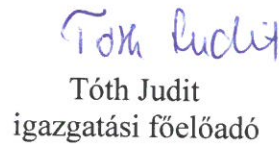 Tóth Judit
Tóth Judit
igazgatási főelőadó